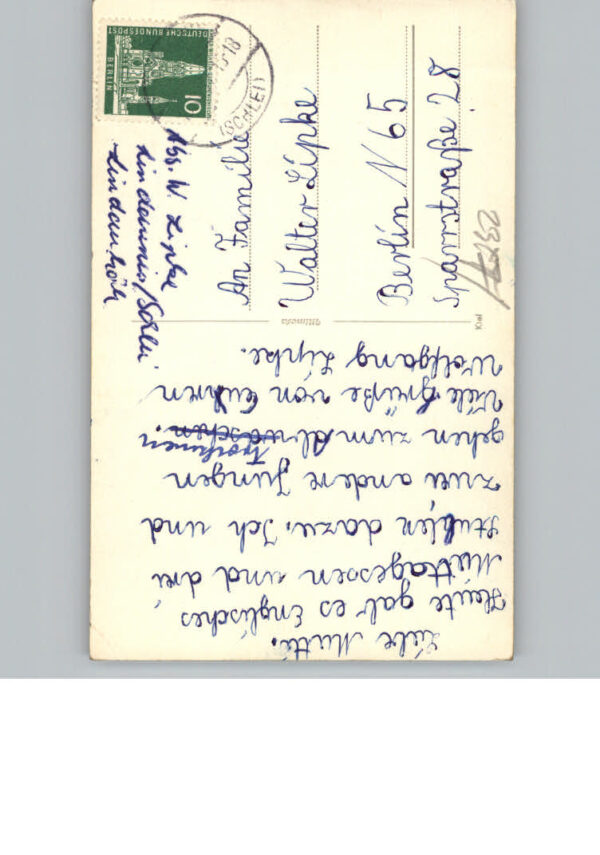 Liebe Mutti.
Heute gab es Englisches
Mittagessen und drei
Stullen dazu. Ich und
zwei andere Jungen
gehen zum Abwaschen.
Trocknen.
Viele Grüße von Euhren
Wolfgang Lipke.
Abs. W. Lipke
Lindaunis/Schlei
DEUTSCHE BUNDESPOST
BERLIN
10
(SCHLEI)
An Familie
Walter Lipke
Berlin N 65
Sparrstraße 28
Kiel